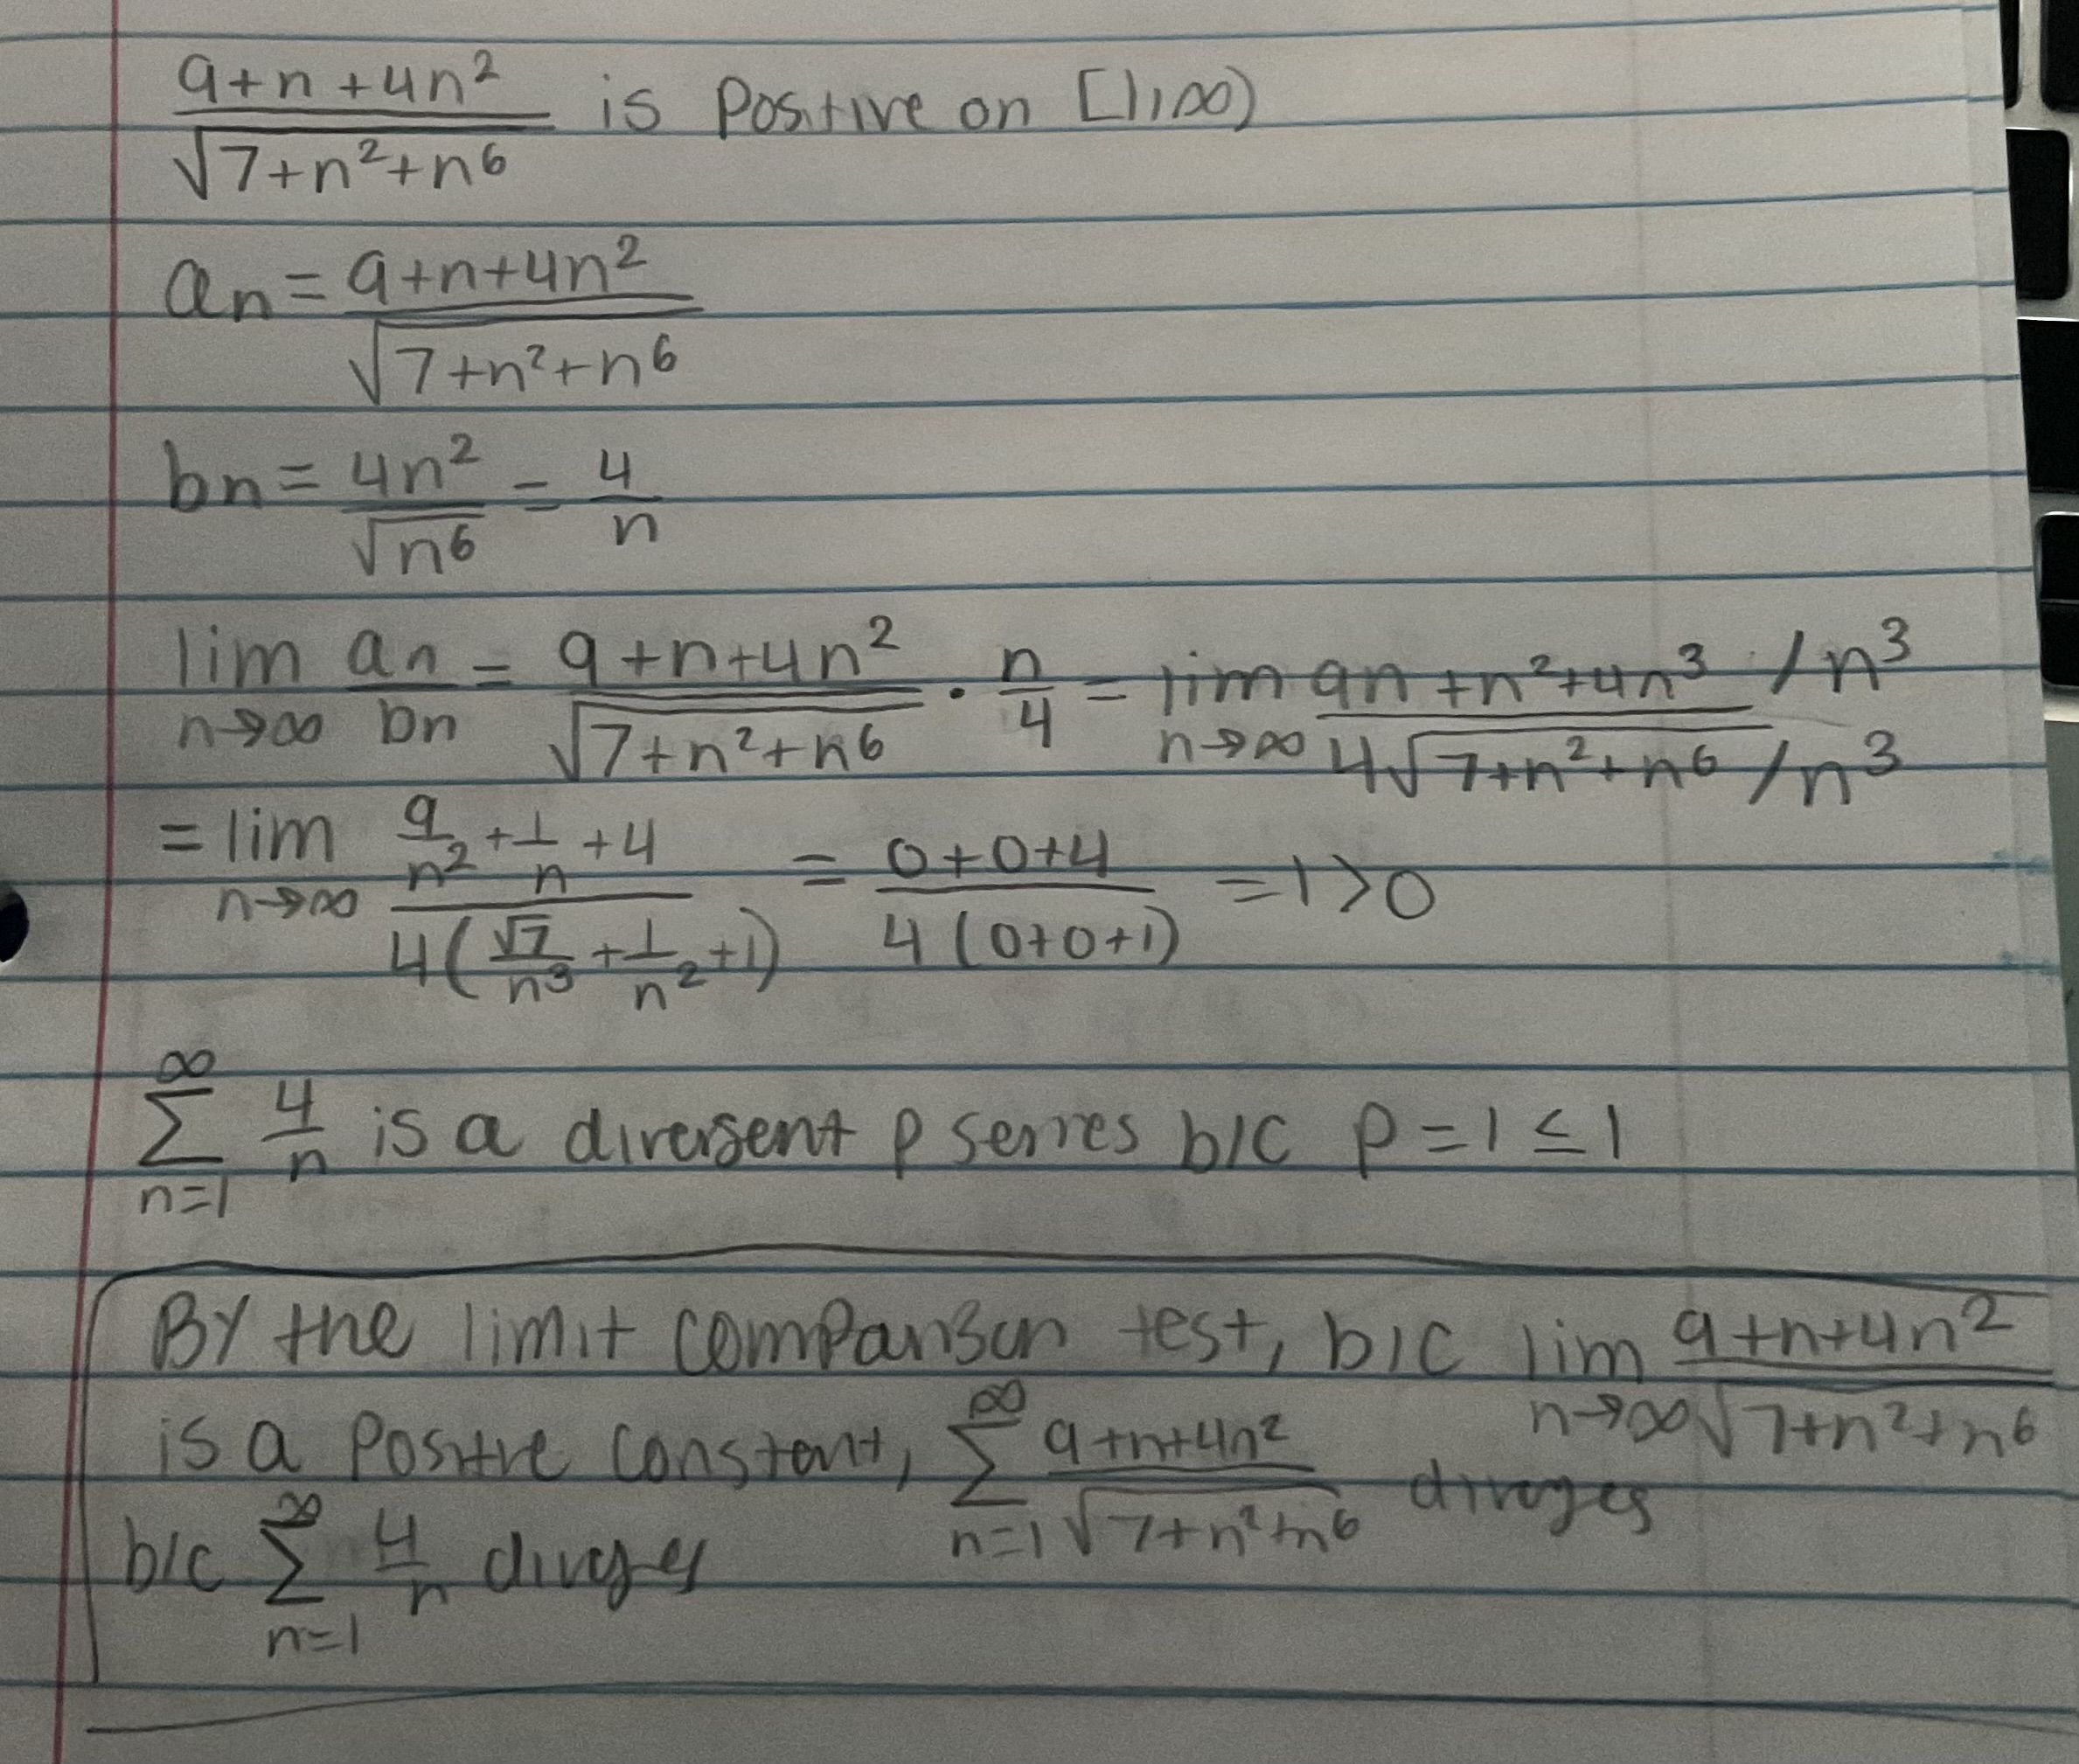 9+n+4n² / √(7+n²+n⁶) is positive on [1,∞)
aₙ = 9+n+4n² / √(7+n²+n⁶)
bₙ = 4n² / √(n⁶) = 4/n
lim n→∞ aₙ/bₙ = 9+n+4n² / √(7+n²+n⁶) · n/4 = lim n→∞ 9n+n²+4n³ /n³ / 4√(7+n²+n⁶) /n³
= lim n→∞ (9/n² + 1/n + 4) / 4(√7/n³ + 1/n² + 1) = 0+0+4 / 4(0+0+1) = 1>0
∑ n=1 ∞ 4/n is a divergent p series b/c p = 1 ≤ 1
By the limit comparison test, b/c lim n→∞ 9+n+4n² / √(7+n²+n⁶)
is a positive constant, ∑ n=1 ∞ 9+n+4n² / √(7+n²+n⁶) diverges
b/c ∑ n=1 ∞ 4/n diverges